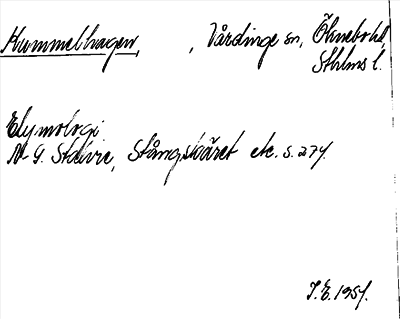 Kummelhagen, , Vårdinge sn, Öknebo hd
Sthlms l.
Etymologi
N-G. Stahre, Stångskäret etc. s. 274.
I.E. 1957.